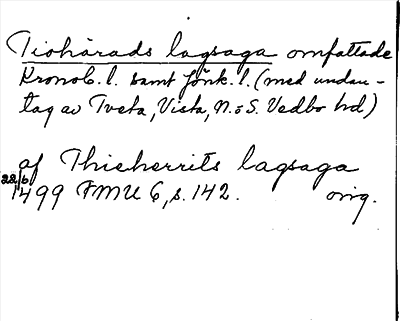 Tiohärads lagsaga omfattade
Kronob. l. samt Jönk. l. (med undan-
tag av Tveta, Vista, N. o S. Vedbo hd)
af Thieherrits lagsaga
22/6
1499 FMU 6, s. 142. orig.